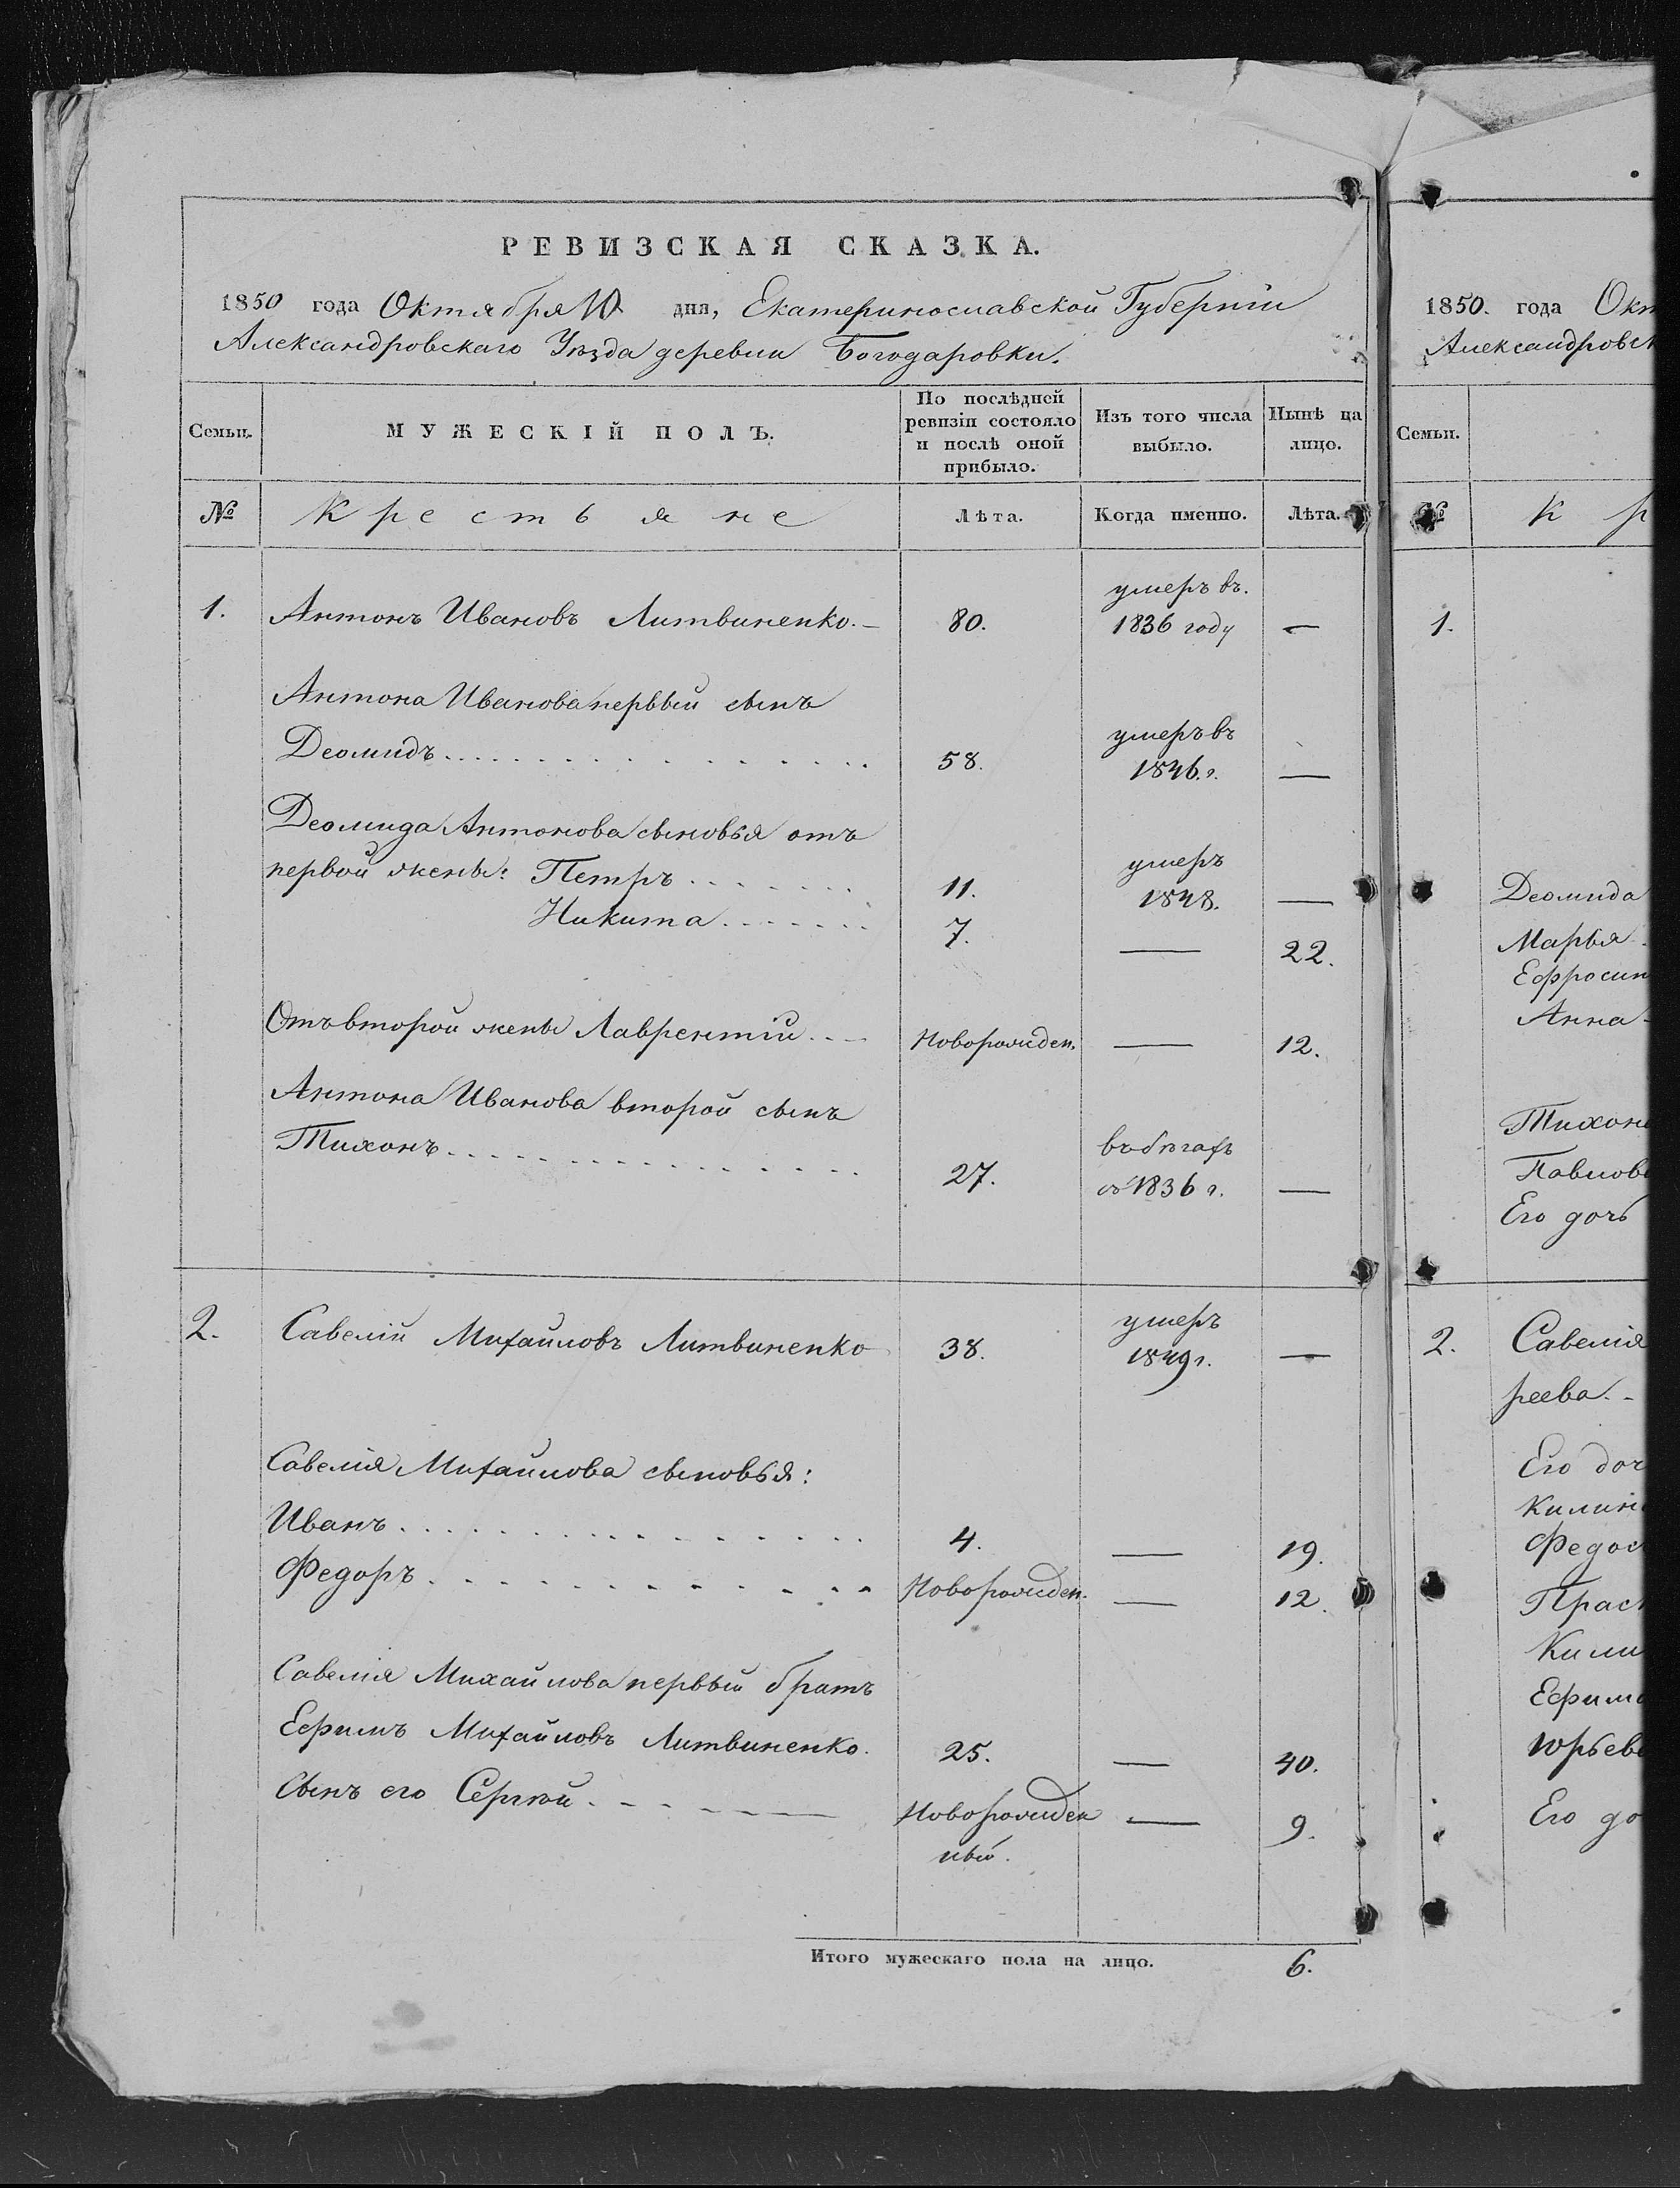 РЕВИЗСКАЯ СКАЗКА.
1850 года Октября 10 дня, Екатеринославской Губерніи
Александровскаго Уѣзда деревни Богодаровки.
Семьи.
МУЖЕСКІЙ ПОЛЪ.
По послѣдней
ревизіи состояло
и послѣ оной
прибыло.
Изъ того числа
выбыло.
Нынѣ на
лицо.
№ Крестьяне Лѣта. Когда именно. Лѣта.
1. Антонъ Ивановъ Литвиненко. 80. умеръ въ.
1836 году —
Антона Иванова первый сынъ
Деомидъ 58. умеръ въ
1846. г. —
Деомида Антонова сыновья отъ
первой жены: Петръ 11. умеръ
1848. —
Никита 7. — 22.
Отъ второй жены Лаврентій Новорожден. — 12.
Антона Иванова второй сынъ
Тихонъ 27. въ бѣгахъ
съ 1836 г. —
2. Савелій Михайловъ Литвиненко 38. умеръ
1849 г. —
Савелія Михайлова сыновья:
Иванъ 4. — 19.
Федоръ Новорожден. — 12.
Савелія Михайлова первый братъ
Ефимъ Михайловъ Литвиненко. 25. — 40.
Сынъ его Сергѣй Новорожден
ный. — 9.
Итого мужескаго пола на лицо. 6.
1850. года Окт
Александровск
Семьи.
№ К р
1.
Деомида
Марья
Ефросин
Анна
Тихон
Павлов
Его дочь
2. Савелія
реева.
Его доч
Килин
Федос
Праск
Кили
Ефим
Юрьев
Его до